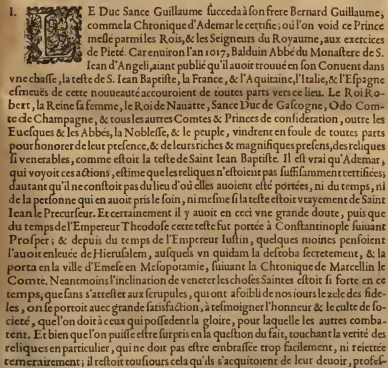 I.
LE Duc Sance Guillaume succeda à son frere Bernard Guillaume,
comme la Chronique d'Ademar le certifie; où l'on void ce Prince
meslé parmi les Rois, & les Seigneurs du Royaume, aux exercices
de Pieté. Car enuiron l'an 1017, Balduin Abbé du Monastere de S.
Iean d'Angeli, aiant publié qu'il auoit trouué en son Conuent dans
vne chasse, la teste de S. Iean Baptiste, la France, & l'Aquitaine, l'Italie, & l'Espagne
esmeuës de cette nouueauté accouroient de toutes parts vers ce lieu. Le Roi Ro-
bert, la Reine sa femme, le Roi de Nauarre, Sance Duc de Gascogne, Odo Com-
te de Champagne, & tous les autres Comtes & Princes de consideration, outre les
Euesques & les Abbés, la Noblesse, & le peuple, vindrent en foule de toutes parts
pour honorer de leur presence, & de leurs riches & magnifiques presens, des reliques
si venerables, comme estoit la teste de Saint Iean Baptiste. Il est vrai qu'Ademar,
qui voyoit ces actions, estime que les reliques n'estoient pas suffisamment certifiées;
dautant qu'il ne constoit pas du lieu d'où elles auoient esté portées, ni du temps, ni
de la personne qui en auoit pris le soin, ni mesme si la teste estoit vrayement de Saint
Iean le Precurseur. Et certainement il y auoit en ceci vne grande doute, puis que
du temps de l'Empereur Theodose cette teste fut portée à Constantinople suiuant
Prosper; & depuis du temps de l'Empereur Iustin, quelques moines pensoient
l'auoir enleuée de Hierusalem, ausquels vn quidam la desroba secretement, & la
porta en la ville d'Emese en Mesopotamie, suiuant la Chronique de Marcellin le
Comte. Neantmoins l'inclination de venerer les choses Saintes estoit si forte en ce
temps, que sans s'arrester aux scrupules, qui ont afoibli de nos iours le zele des fide-
les, on se portoit auec grande satisfaction, à tesmoigner l'honneur & le culte de so-
cieté, que l'on doit à ceux qui possedent la gloire, pour laquelle les autres comba-
tent. Et bien que l'on puisse estre surpris en la question du fait, touchant la verité des
reliques en particulier, qui ne doit pas estre embrassée trop facilement, ni reiettée
temerairement; il restoit tousiours cela qu'ils s'acquitoient de leur deuoir, profes-